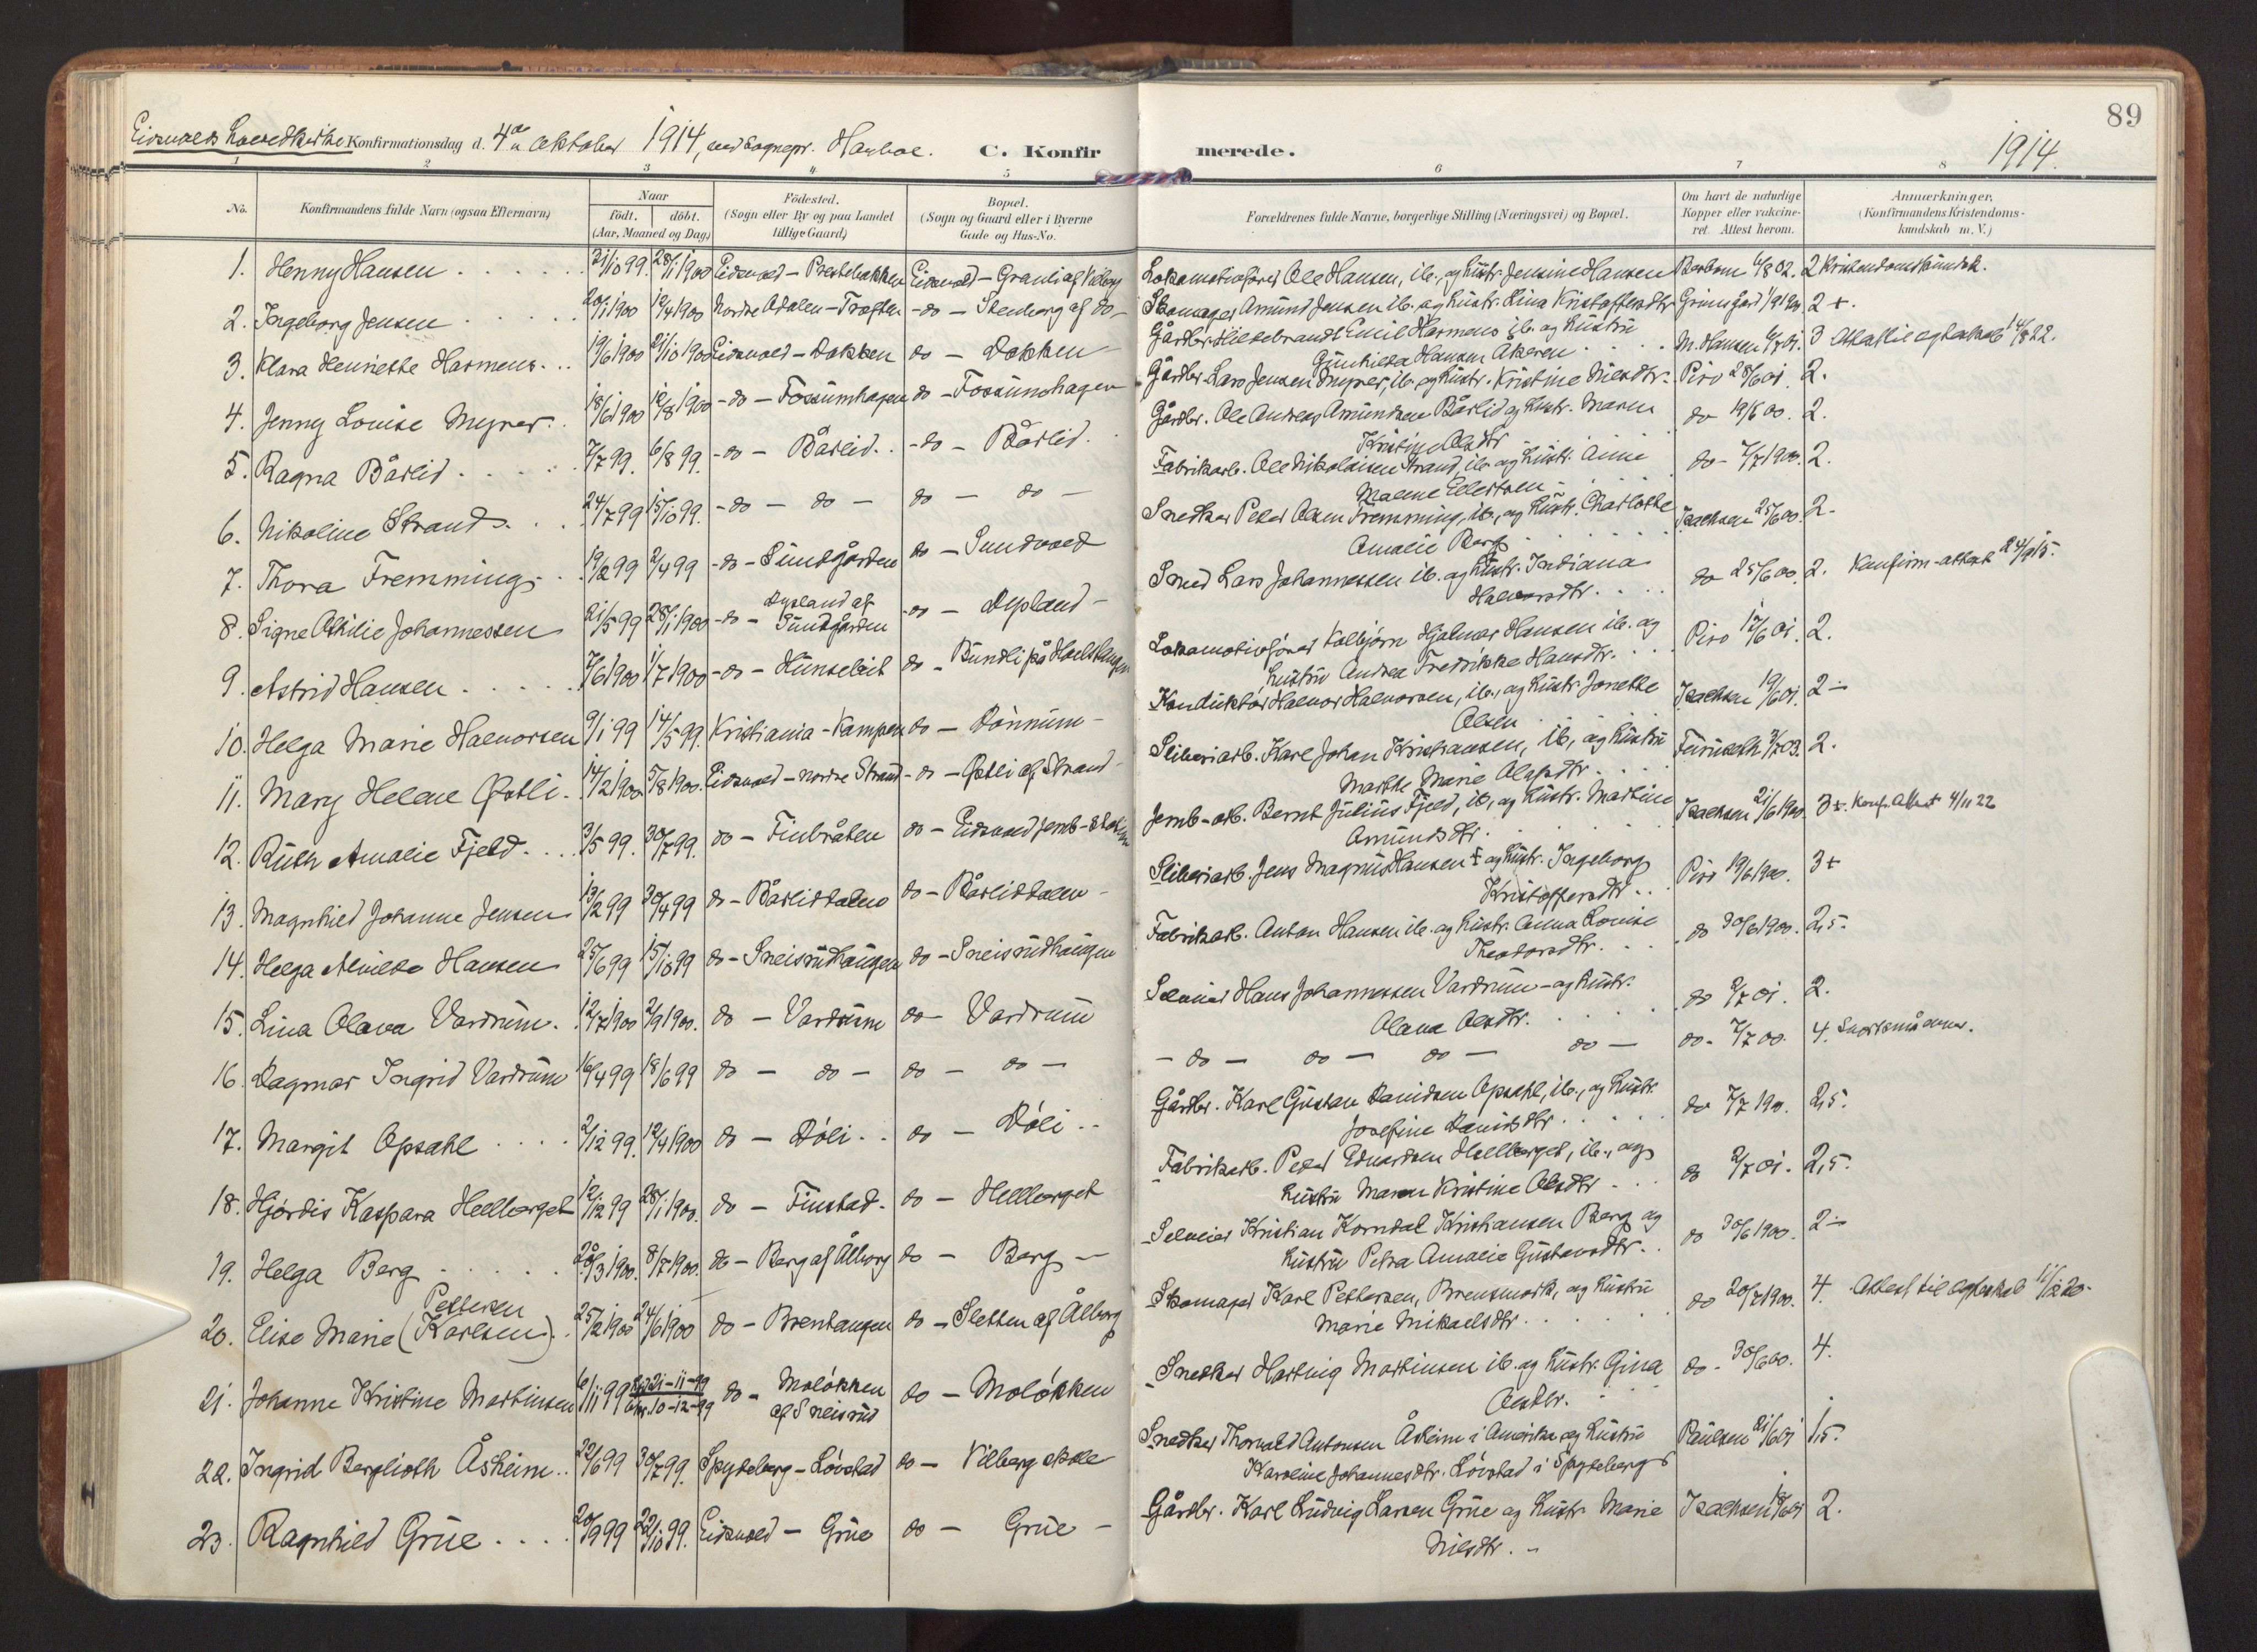 89
Eidsvolds Hovedkirke Konfirmationsdag d. 4de Oktober 1914, ved Sognepr. C. Konfirmerede. 1914.
1 2 3 4 5 6 7 8
No. Konfirmandens fulde Navn (ogsaa Efternavn) Naar født. døbt. (Aar, Maaned og Dag.) Fødested. (Sogn eller By og paa Landet tillige Gaard.) Bopæl. (Sogn og Gaard eller i Byerne Gade og Hus-No. Forældrenes fulde Navne, borgerlige Stilling (Næringsvei) og Bopæl. Om havt de naturlige Kopper eller vakcineret. Attest herom. Anmærkninger. (Konfirmandens Kristendomskundskab m. V.)
1. Henny Hansen 21/10 99. 28/1 1900 Eidsvold - Prestebakken Eidsvold - Granli af Vilberg Lokomotivfører Ole Hansen, ib., og hustr. Jensine Hansen 6/8 02. 2 Kristendomskundsk.
2. Ingeborg Jensen 20/1 1900 12/4 1900 Nordre Odalen - Træften - do - Stenborg af do - Skomager Amund Jensen ib. og hustr. Lina Kristoffersdtr. Grinsgård 2+.
3. Klara Henriette Harmens 19/6 1900 21/10 1900 Eidsvold - Dokken do - Dokken - Gårdbr. Hildebrandt Emil Harmens ib. og hustru
Gunhilda Hansen Åkeren M. Hansen 3 Attest til egteskab 14/8 22.
4. Jenny Louise Myrer 18/6 1900 12/8 1900 - do - Fossumhagen do - Fossumhagen Gårdbr. Lars Jensen Myrer, ib. og hustr. Kristine Nilsdtr. Piro 28/6 01. 2.
5. Ragna Bårlid 7/7 99. 6/8 99. - do - Bårlid. - do - Bårlid. Gårdbr. Ole Andreas Amundsen Bårlid og hustr. Maren
Kristine Olsdtr do 19/6 00. 2.
6. Nikoline Strand 24/7 99 15/10 99. - do - do - do - do - Fabrikarb. Ole Nikolaisen Strand, ib. og hustr. Anne
Malene Ellefsen do - 7/7 1900. 2.
7. Thora Fremming 19/2 99 2/4 99 - do - Sundgården do - Sundvold Snedker Peder Olsen Fremming, ib., og hustr. Charlotte
Amalie Berg Isachsen 25/6 00. 2.
8. Signe Othilie Johannessen 21/5 99 28/1 1900 - do - Dypland af Sundgården do - Dypland - Smed Lars Johannessen ib. og hustr. Indiana
Halvorsdtr. do 25/6 00. 2. Konfirm-attest 24/9 15.
9. Astrid Hansen 7/6 1900 1/7 1900 - do - Hunseløit do - Bundli på Holstangen Lokomotivfører Kolbjørn Hjalmar Hansen ib. og
hustru Andrea Fredrikke Hansdtr. Piro 12/6 01. 2.
10. Helga Marie Halvorsen 9/1 99 14/5 99. Kristiania - Kampen do - Dønnum - Konduktør Halvor Halvorsen, ib., og hustr. Jonette
Olsen Isachsen 19/6 01. 2 -
11. Mary Helene Østli 14/2 1900 5/8 1900. Eidsvold - nordre Strand - do - Østli af Strand - Sliberiarb. Karl Johan Kristiansen, ib., og hustru
Marthe Marie Olafsdtr. Furuseth 3/7 03. 2.
12. Ruth Amalie Fjeld 3/5 99. 30/7 99. do - Finbråten do - Eidsvold jernb-station Jernb-arb. Bernt Julius Fjeld, ib., og hustr. Martine
Amundsdtr. Isachsen 21/6 1900. 3+. Konf. Attest 4/11 22
13. Magnhild Johanne Jensen 13/2 99 30/4 99 do - Bårliddalen do - Bårliddalen - Sliberiarb. Jens Magnus Hansen + og hustr. Ingeborg
Kristoffersdtr. Piro 19/6 1900. 3+
14. Helga Alvilda Hansen 25/6 99 15/10 99 do - Sneisrudhaugen do - Sneisrudhaugen Fabrikarb. Anton Hansen ib. og hustr. Anna Louise
Theodorsdtr. do 30/6 1900. 2,5.
15. Lina Olava Vardrum. 12/7 1900 2/9 1900. do - Vardrum do - Vardrum Selveier Hans Johannessen Vardrum - og hustr.
Olava Olsdtr. do 2/7 01. 2.
16. Dagmar Ingrid Vardrum 16/4 99 18/6 99 do - do - do - do - - do - do - do - do - do - 7/7 00. 4.
17. Margit Opsahl 2/12 99. 12/4 1900 do - Døli do - Døli Gårdbr. Karl Gustav Davidsen Opsahl, ib., og hustr.
Josefine Davidsdtr. do 7/7 190. 2,5.
18. Hjørdis Kaspara Hellberget 12/12 99 28/1 1900. do - Finstad - do - Hellberget Fabrikarb. Peder Edvardsen Hellberget, ib., og
hustru Maren Kristine Olsdtr. do 2/7 01. 2,5.
19. Helga Berg 28/3 1900. 8/7 1900. do - Berg af Ålborg do - Berg - Selveier Kristian Korndal Kristiansen Berg og
hustru Petra Amalie Gustavsdtr. do 30/6 1900. 2 -
20. Elise Marie (Karlsen) Pettersen 25/2 1900 24/6 1900 do - Brenhaugen do - Sletten af Ålborg Skomager Karl Pettersen, Brensmork, og hustru
Marie Mikaelsdtr. do 20/7 1900. 4. Attest til egteskab 11/12 20.
21. Johanne Kristine Martinsen 6/11 99 21-11-99 10-12-99 do - Moløkken af Sneisrud do - Moløkken Snedker Hartvig Martinsen ib. og hustr. Gina
Olsdtr. do - 30/6 00. 4.
22. Ingrid Berglioth Åsheim 22/6 99 30/7 99. Spydeberg - Løvstad do - Vilberg skole Snedker Thorvald Antonsen Åsheim i Amerika og hustru
Karoline Johannesdtr. Løvstad i Spydeberg Paulsen 21/6 01 1,5.
23. Ragnhild Grue 20/9 99 22/10 99. Eidsvold - Grue do - Grue - Gårdbr. Karl Ludvig Larsen Grue og hustr. Marie
Nilsdtr. - Isachsen 2.